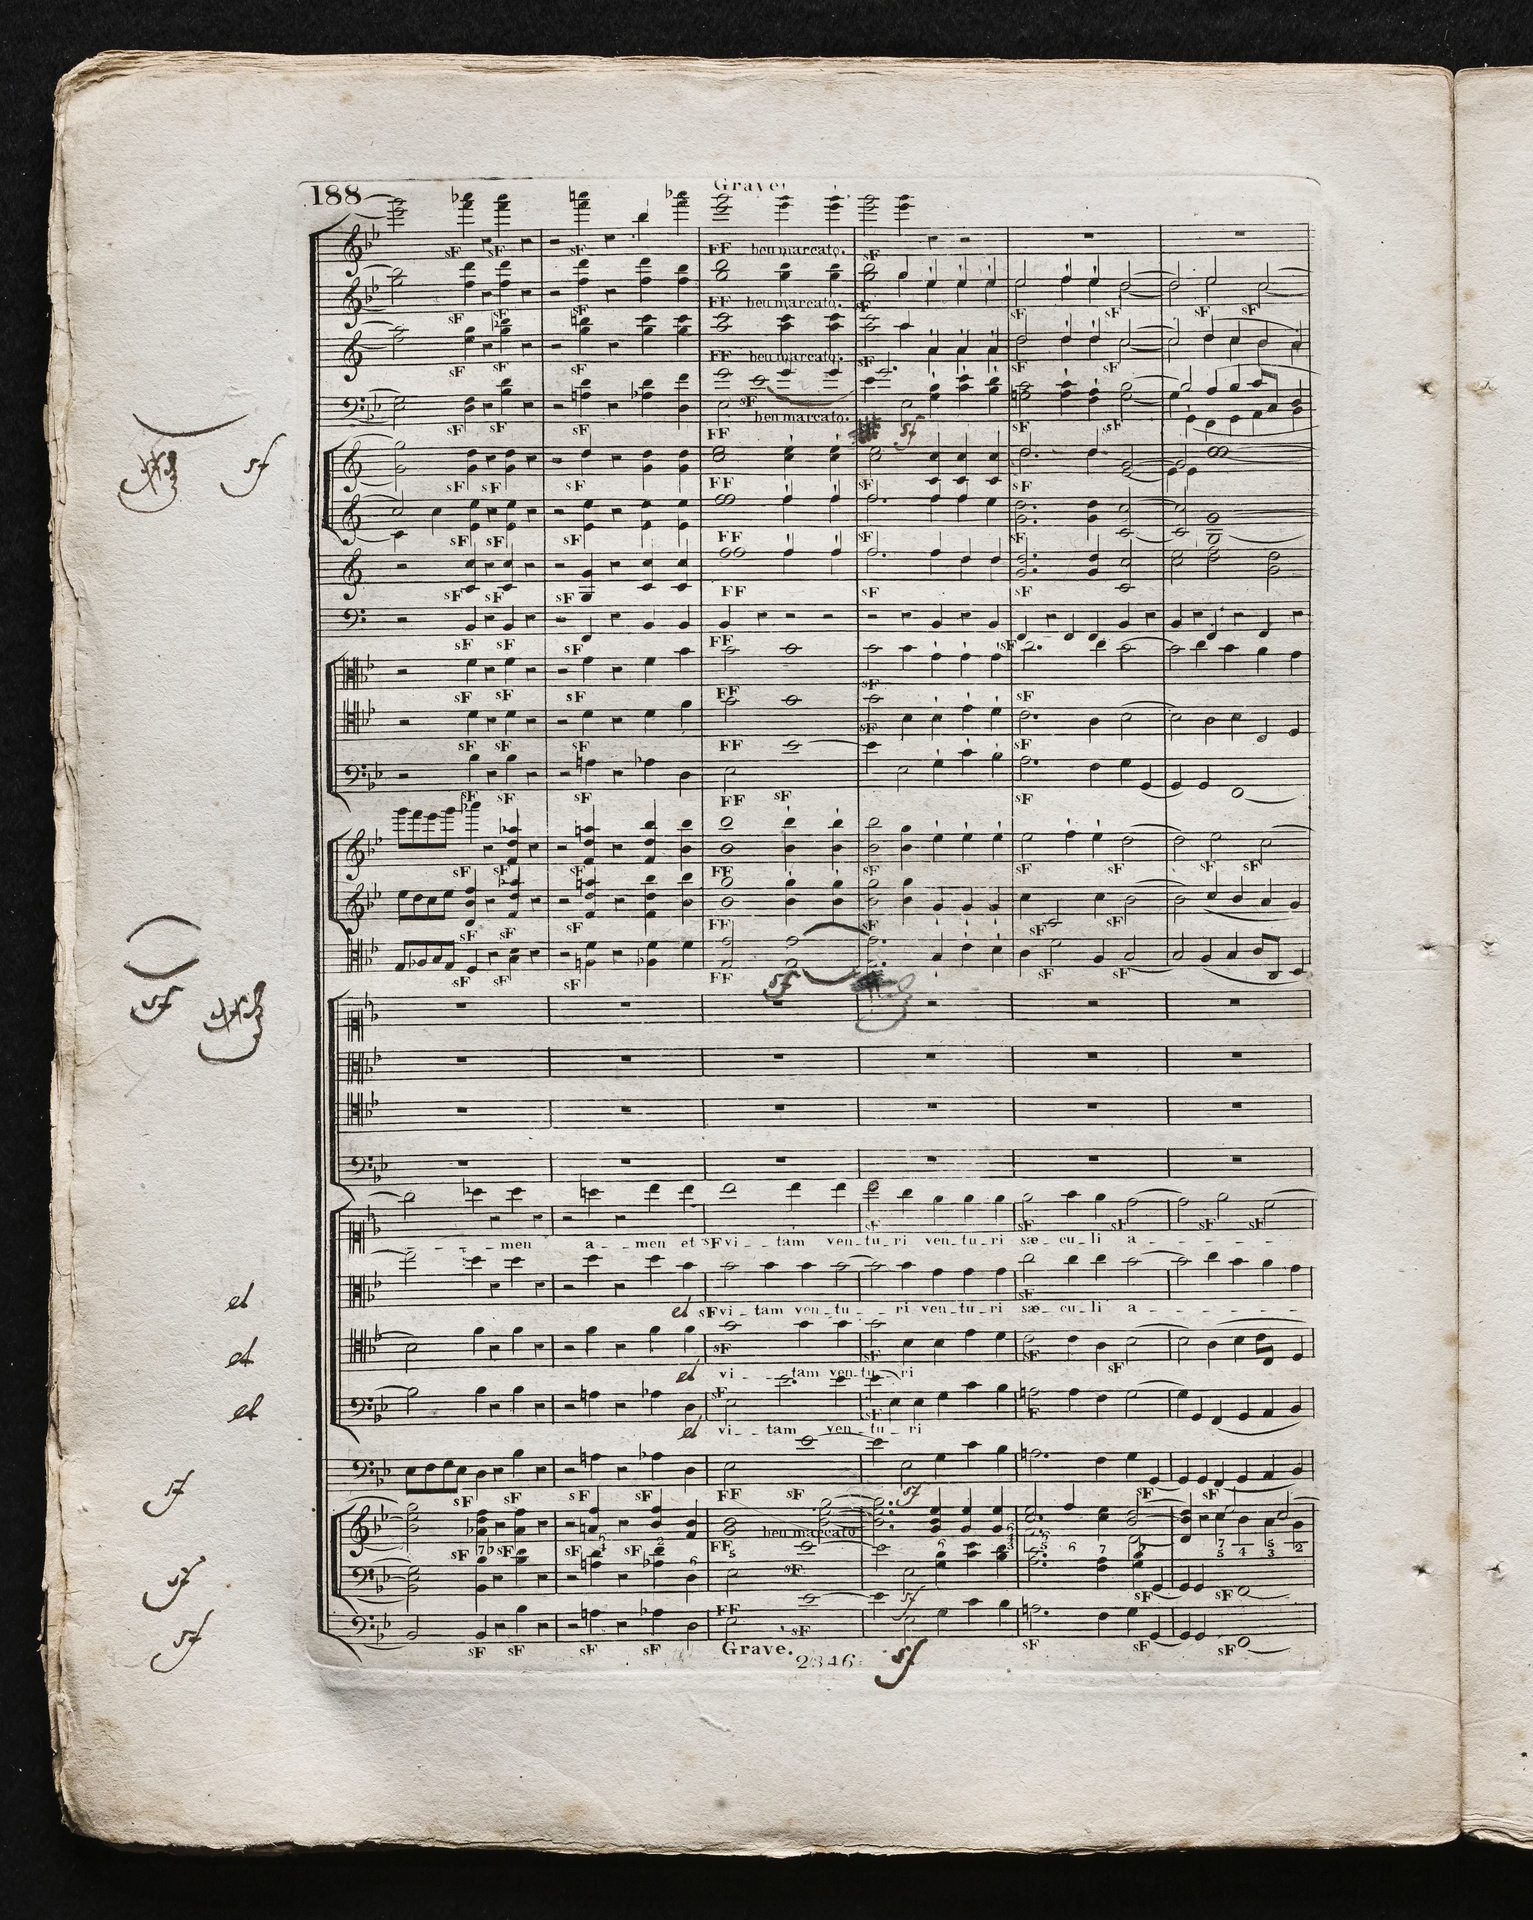 188
Grave.
sF sF sF FF ben marcato. sF
sF sF sF FF ben marcato. sF sF sF sF sF
sF sF sF FF ben marcato. sF sF sF
sF sF sF sF ben marcato. sF sF
FF sf
sf
sF sF sF FF sF sF
sF sF sF FF sF sF
sF sF sF FF sF
sF sF sF FF sF
sF sF sF FF sF sF
sF sF sF FF sF sF
sF sF sF FF sF sF
sF sF sF FF sF sF sF sF sF
sF sF sF FF sF sF sF
sF sF FF sF sF
sf sf
sF sF sF sF sF
_ _ _ men a _ men et sF vi _ tam ven _ tu _ ri ven _ tu _ ri sæ _ cu _ li a _ _ _ _ _
et et sF vi _ tam ven _ tu _ _ ri ven _ tu _ ri sæ _ cu _ li a _ _ _ _ _
sF sF sF sF
et et vi _ _ tam ven _ tu _ ri
sF sF F
et et vi _ tam ven _ tu _ ri
sF sF sF sF FF sF sf sF sF
sf
ben marcato
sF 7b sF sF sF FF
5
6 5 6 7 7 5 4 5 3 2
6
sF sF sF
sf
sf
FF sF
sf
sF sF sF sF sF sF sF
Grave.
2346.
sf